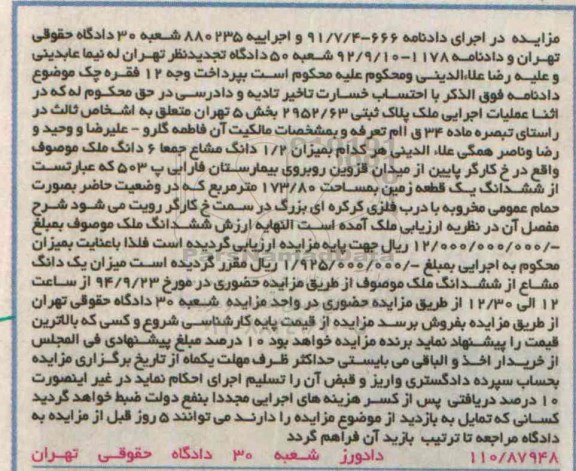 مزایده در اجرای دادنامه ۶۶۶-۹۱/۷/۴ و اجراییه ۸۸۰۲۳۵ شعبه ۳۰ دادگاه حقوقی
تهران و دادنامه ۱۱۷۸-۹۲/۹/۱۰ شعبه ۵۰ دادگاه تجدیدنظر تهران له نیما عابدینی
و علیه رضا علاءالدینی ومحکوم علیه محکوم است بپرداخت وجه ۱۲ فقره چک موضوع
دادنامه فوق الذکر با احتساب خسارت تاخیر تادیه و دادرسی در حق محکوم له که در
اثنا عملیات اجرایی ملک پلاک ثبتی ۲۹۵۲/۶۳ بخش ۵ تهران متعلق به اشخاص ثالث در
راستای تبصره ماده ۳۴ ق اام تعرفه و بمشخصات مالکیت آن فاطمه گلرو - علیرضا و وحید و
رضا وناصر همگی علاء الدینی هر کدام بمیزان ۱/۲ دانگ مشاع جمعا ۶ دانگ ملک موصوف
واقع در خ کارگر پایین از میدان قزوین روبروی بیمارستان فارابی پ ۵۰۳ که عبارتست
از ششدانگ یک قطعه زمین بمساحت ۱۷۳/۸۰ مترمربع که در وضعیت حاضر بصورت
حمام عمومی مخروبه با درب فلزی کرکره ای بزرگ در سمت خ کارگر رویت می شود شرح
مفصل آن در نظریه ارزیابی ملک آمده است النهایه ارزش ششدانگ ملک موصوف بمبلغ
-/۱۲/۰۰۰/۰۰۰/۰۰۰ ریال جهت پایه مزایده ارزیابی گردیده است فلذا باعنایت بمیزان
محکوم به اجرایی بمبلغ -/۱/۹۲۵/۰۰۰/۰۰۰ ریال مقرر گردیده است میزان یک دانگ
مشاع از ششدانگ ملک موصوف از طریق مزایده حضوری در مورخ ۹۴/۹/۲۳ از ساعت
۱۲ الی ۱۲/۳۰ از طریق مزایده حضوری در واحد مزایده شعبه ۳۰ دادگاه حقوقی تهران
از طریق مزایده بفروش برسد مزایده از قیمت پایه کارشناسی شروع و کسی که بالاترین
قیمت را پیشنهاد نماید برنده مزایده خواهد بود ۱۰ درصد مبلغ پیشنهادی فی المجلس
از خریدار اخذ و الباقی می بایستی حداکثر ظرف مهلت یکماه از تاریخ برگزاری مزایده
بحساب سپرده دادگستری واریز و قبض آن را تسلیم اجرای احکام نماید در غیر اینصورت
۱۰ درصد دریافتی پس از کسر هزینه های اجرایی مجددا بنفع دولت ضبط خواهد گردید
کسانی که تمایل به بازدید از موضوع مزایده را دارند می توانند ۵ روز قبل از مزایده به
دادگاه مراجعه تا ترتیب بازید آن فراهم گردد
۱۱۰/۸۷۹۴۸ دادورز شعبه ۳۰ دادگاه حقوقی تهران